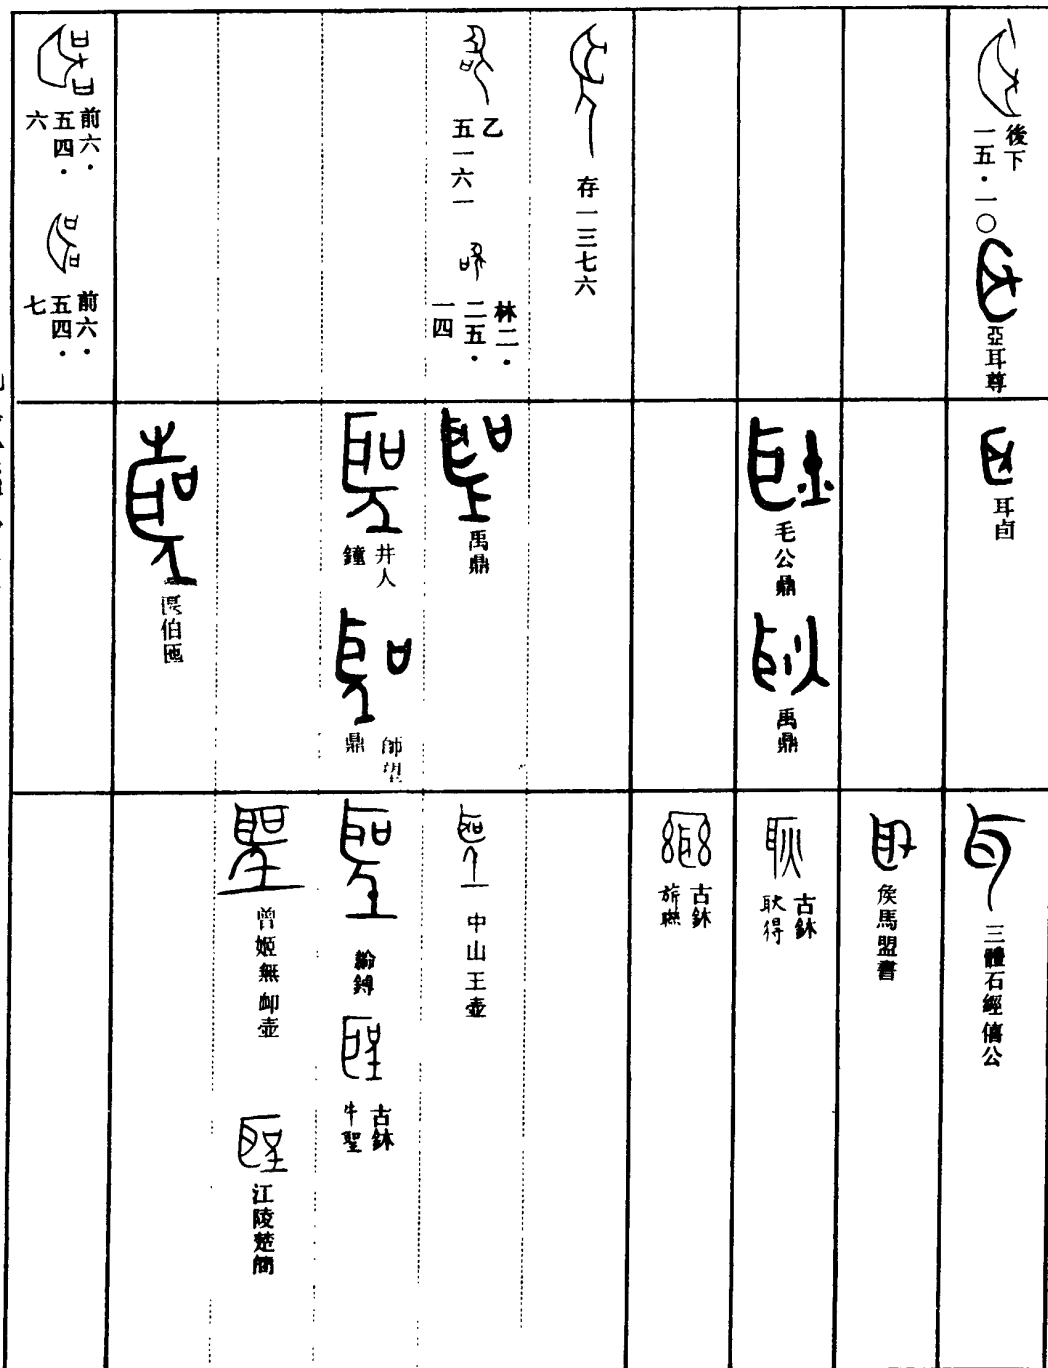 後下
一五·一〇
亞耳尊
存一三七六
乙
五一六一
林二·
二五·
一四
前六·
五四·
六
前六·
五四·
七
耳卣
毛公鼎
禹鼎
禹鼎
井人
鐘
師望
鼎
伯匜
三體石經僖公
侯馬盟書
古鉨
耿得
古鉨
中山王壺
鎛
古鉨
牛聖
曾姬無卹壺
江陵楚簡